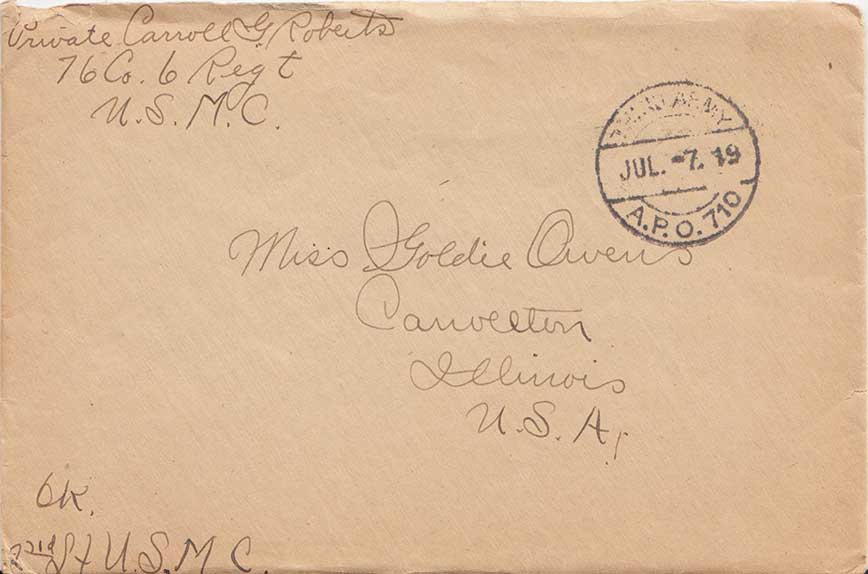 Private Carroll G Roberts
76 Co. 6 Regt
U.S.M.C.
ARMY
JUL. -7. 19
A.P.O. 710
Miss Goldie Owens
Carrollton
Illinois
U.S.A.
OK.
U.S.M.C.